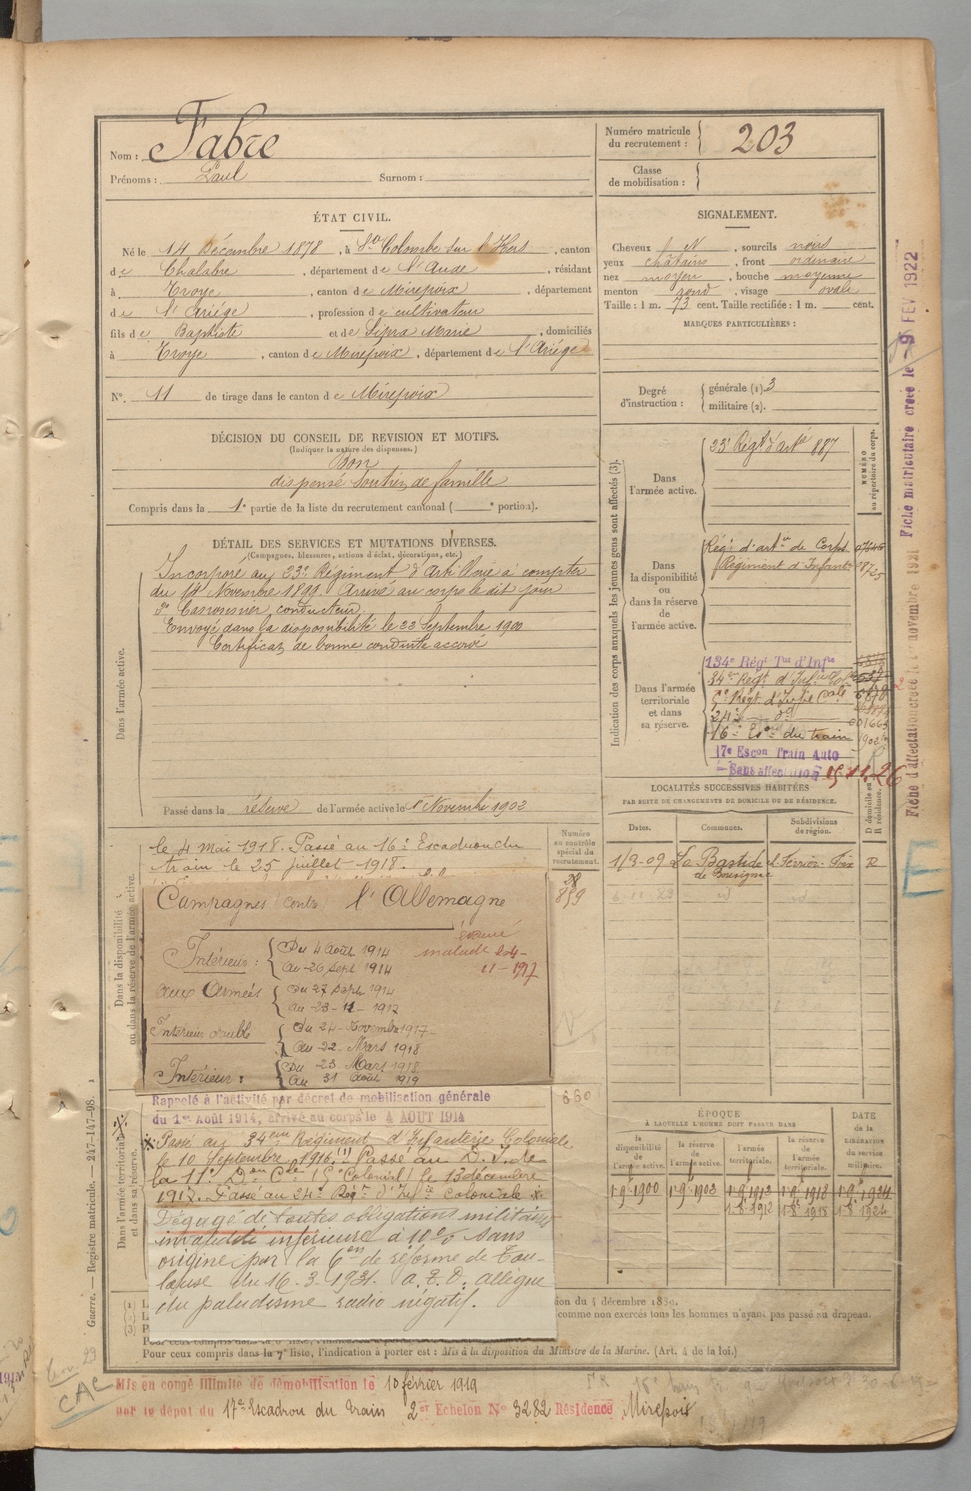 Nom : Fabre
Prénoms : Paul Surnom :
Numéro matricule du recrutement : 203
Classe de mobilisation :
ÉTAT CIVIL.
Né le 14 Décembre 1878, à Ste Colombe sur l'Hers, canton
de Chalabre, département de l'Aude, résidant
à Troye, canton de Mirepoix, département
de l'Ariège, profession de cultivateur
fils de Baptiste et de Marie, domiciliés
à Troye, canton de Mirepoix, département de l'Ariège
N°. 11 de tirage dans le canton de Mirepoix
SIGNALEMENT.
Cheveux N, sourcils noirs
yeux châtains, front ordinaire
nez moyen, bouche moyenne
menton rond, visage ovale
Taille : 1 m. 73 cent. Taille rectifiée : 1 m. cent.
MARQUES PARTICULIÈRES :
Degré d'instruction : générale (1). 3
militaire (2).
DÉCISION DU CONSEIL DE REVISION ET MOTIFS.
(Indiquer la nature des dispenses.)
Bon
dispensé Soutien de famille
Compris dans la 1e partie de la liste du recrutement cantonal ( e portion).
DÉTAIL DES SERVICES ET MUTATIONS DIVERSES.
(Campagnes, blessures, actions d'éclat, décorations, etc.)
Dans l'armée active.
Incorporé au 23e Régiment d'Artillerie à compter
du 14 Novembre 1899. Arrivé au corps le dit jour
2e Canonnier conducteur
Envoyé dans la disponibilité le 22 Septembre 1900
Certificat de bonne conduite accordé
Passé dans la réserve de l'armée active le 1er Novembre 1902
Indication des corps auxquels les jeunes gens sont affectés (3).
NUMÉRO au répertoire du corps.
Dans l'armée active.
23e Régt d'artie 887
Dans la disponibilité ou dans la réserve de l'armée active.
Régt d'artie de Corps
Régiment d'Infanterie
Dans l'armée territoriale et dans sa réserve.
134e Régt Tal d'Infie
34e Régt d'Infie Cole
5e Régt d'Infie Cale
24e d°
16e Eson du train
17e Escon Train Auto
Sans affectation 15.11.26
LOCALITÉS SUCCESSIVES HABITÉES
PAR SUITE DE CHANGEMENTS DE DOMICILE OU DE RÉSIDENCE.
Dates. Communes. Subdivisions de région. D domicile ou R résidence.
1/3-09 La Bastide de Bousignac Foix R
Numéro au contrôle spécial du recrutement.
859
660
Dans la disponibilité ou dans la réserve de l'armée active.
le 4 mai 1918. Passé au 16e Escadron du
train le 25 juillet 1918.
Campagnes contre l'Allemagne
Intérieur : Du 4 Août 1914
au 26 Sept 1914
évacué malade le 24-11-1917
aux Armées Du 27 Sept 1914
au 23-11-1917
Intérieur Du 24 Novembre 1917
au 22 Mars 1918
Intérieur : Du 23 Mars 1918
au 31 Août 1919
Dans l'armée territoriale et dans sa réserve.
Rappelé à l'activité par décret de mobilisation générale
du 1er Août 1914, arrivé au corps le 4 AOUT 1914
Passé au 34eme Régiment d'Infanterie Coloniale
le 10 Septembre 1916. (1) Passé au D. I. de
la 11e Don Cle (5e Colonial) le 13 décembre
1917. Passé au 24e Régt d'Infie Coloniale
Dégagé de toutes obligations militaires
invalidité inférieure à 10% sans
origine par la 6e Con de réforme de Tou-
louse du 16.3.1931. a.E.D. allègue
du paludisme radio négatif.
ÉPOQUE
À LAQUELLE L'HOMME DOIT PASSER DANS
la disponibilité de l'armée active. la réserve de l'armée active. l'armée territoriale. la réserve de l'armée territoriale. DATE DE LA LIBÉRATION du service militaire.
1-9-1900 1-9-1903 1-9-1913 1-9-1918 1-9-1924
1-8-1912 1-8-1918 1-8-1924
comme non exercés tous les hommes n'ayant pas passé au drapeau.
Pour ceux compris dans la 7e liste, l'indication à porter est : Mis à la disposition du Ministre de la Marine. (Art. 4 de la loi.)
Mis en congé illimité de démobilisation le 10 février 1919
par le dépot du 17e Escadron du Train 2er Echelon N° 3282 Résidence Mirepoix
CAC
Guerre. — Registre matricule. — 247-147-98.
Fiche matriculaire créée le -9 FEV 1922